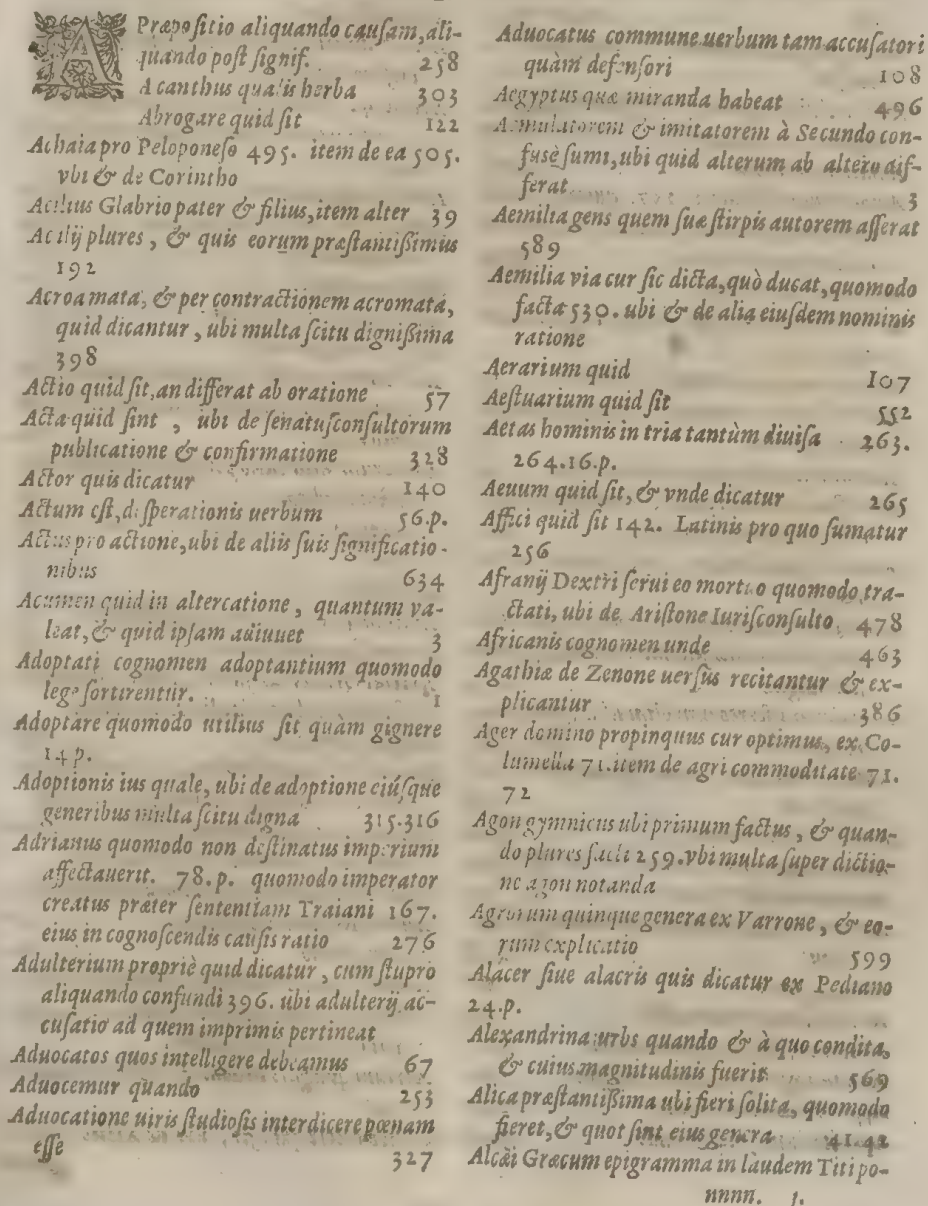 A Præpositio aliquando causam, ali-
quando post signif. 258
Acanthus qualis herba 303
Abrogare quid sit 122
Achaia pro Peloponeso 495. item de ea 505.
vbi & de Corintho
Acilius Glabrio pater & filius, item alter 39
Acilij plures, & quis eorum præstantißimus
192
Acroamata, & per contractionem acromata,
quid dicantur, ubi multa scitu dignißima
398
Actio quid sit, an differat ab oratione 57
Acta quid sint, ubi de senatusconsultorum
publicatione & confirmatione 328
Actor quis dicatur 140
Actum est, disperationis uerbum 56.p.
Actus pro actione, ubi de aliis suis significatio-
nibus 634
Acumen quid in altercatione, quantum va-
leat, & quid ipsam adiuuet 3
Adoptati cognomen adoptantium quomodo
lege sortirentur. 1
Adoptare quomodo utilius sit quàm gignere
14 p.
Adoptionis ius quale, ubi de adoptione eiúsque
generibus multa scitu digna 315.316
Adrianus quomodo non destinatus imperium
affectauerit. 78.p. quomodo imperator
creatus præter sententiam Traiani 167.
eius in cognoscendis causis ratio 276
Adulterium propriè quid dicatur, cum stupro
aliquando confundi 396. ubi adulterij ac-
cusatio ad quem imprimis pertineat
Aduocatos quos intelligere debeamus 67
Aduocemur quando 253
Aduocatione uiris studiosis interdicere pœnam
esse 327
Aduocatus commune uerbum tam accusatori
quàm defensori 108
Aegyptus quæ miranda habeat 496
Aemulatorem & imitatorem à Secundo con-
fusè sumi, ubi quid alterum ab altero dif-
ferat 3
Aemilia gens quem suæ stirpis autorem asserat
589
Aemilia via cur sic dicta, quò ducat, quomodo
facta 530. ubi & de alia eiusdem nominis
ratione
Aerarium quid 107
Aestuarium quid sit 552
Aetas hominis in tria tantùm diuisa 263.
264.16.p.
Aeuum quid sit, & vnde dicatur 265
Affici quid sit 142. Latinis pro quo sumatur
256
Afranij Dextri serui eo mortuo quomodo tra-
ctati, ubi de Aristone Iurisconsulto 478
Africanis cognomen unde 463
Agathiæ de Zenone uersus recitantur & ex-
plicantur 386
Ager domino propinquus cur optimus, ex Co-
lumella 71. item de agri commoditate 71.
72
Agon gymnicus ubi primum factus, & quan-
do plures facti 259. vbi multa super dictio-
ne agon notanda
Agrorum quinque genera ex Varrone, & eo-
rum explicatio 599
Alacer siue alacris quis dicatur ex Pediano
24.p.
Alexandrina urbs quando & à quo condita,
& cuius magnitudinis fuerit 569
Alica præstantißima ubi fieri solita, quomodo
fieret, & quot sint eius genera 41.42
Alcæi Græcum epigramma in laudem Titi po-
nnnn. j.